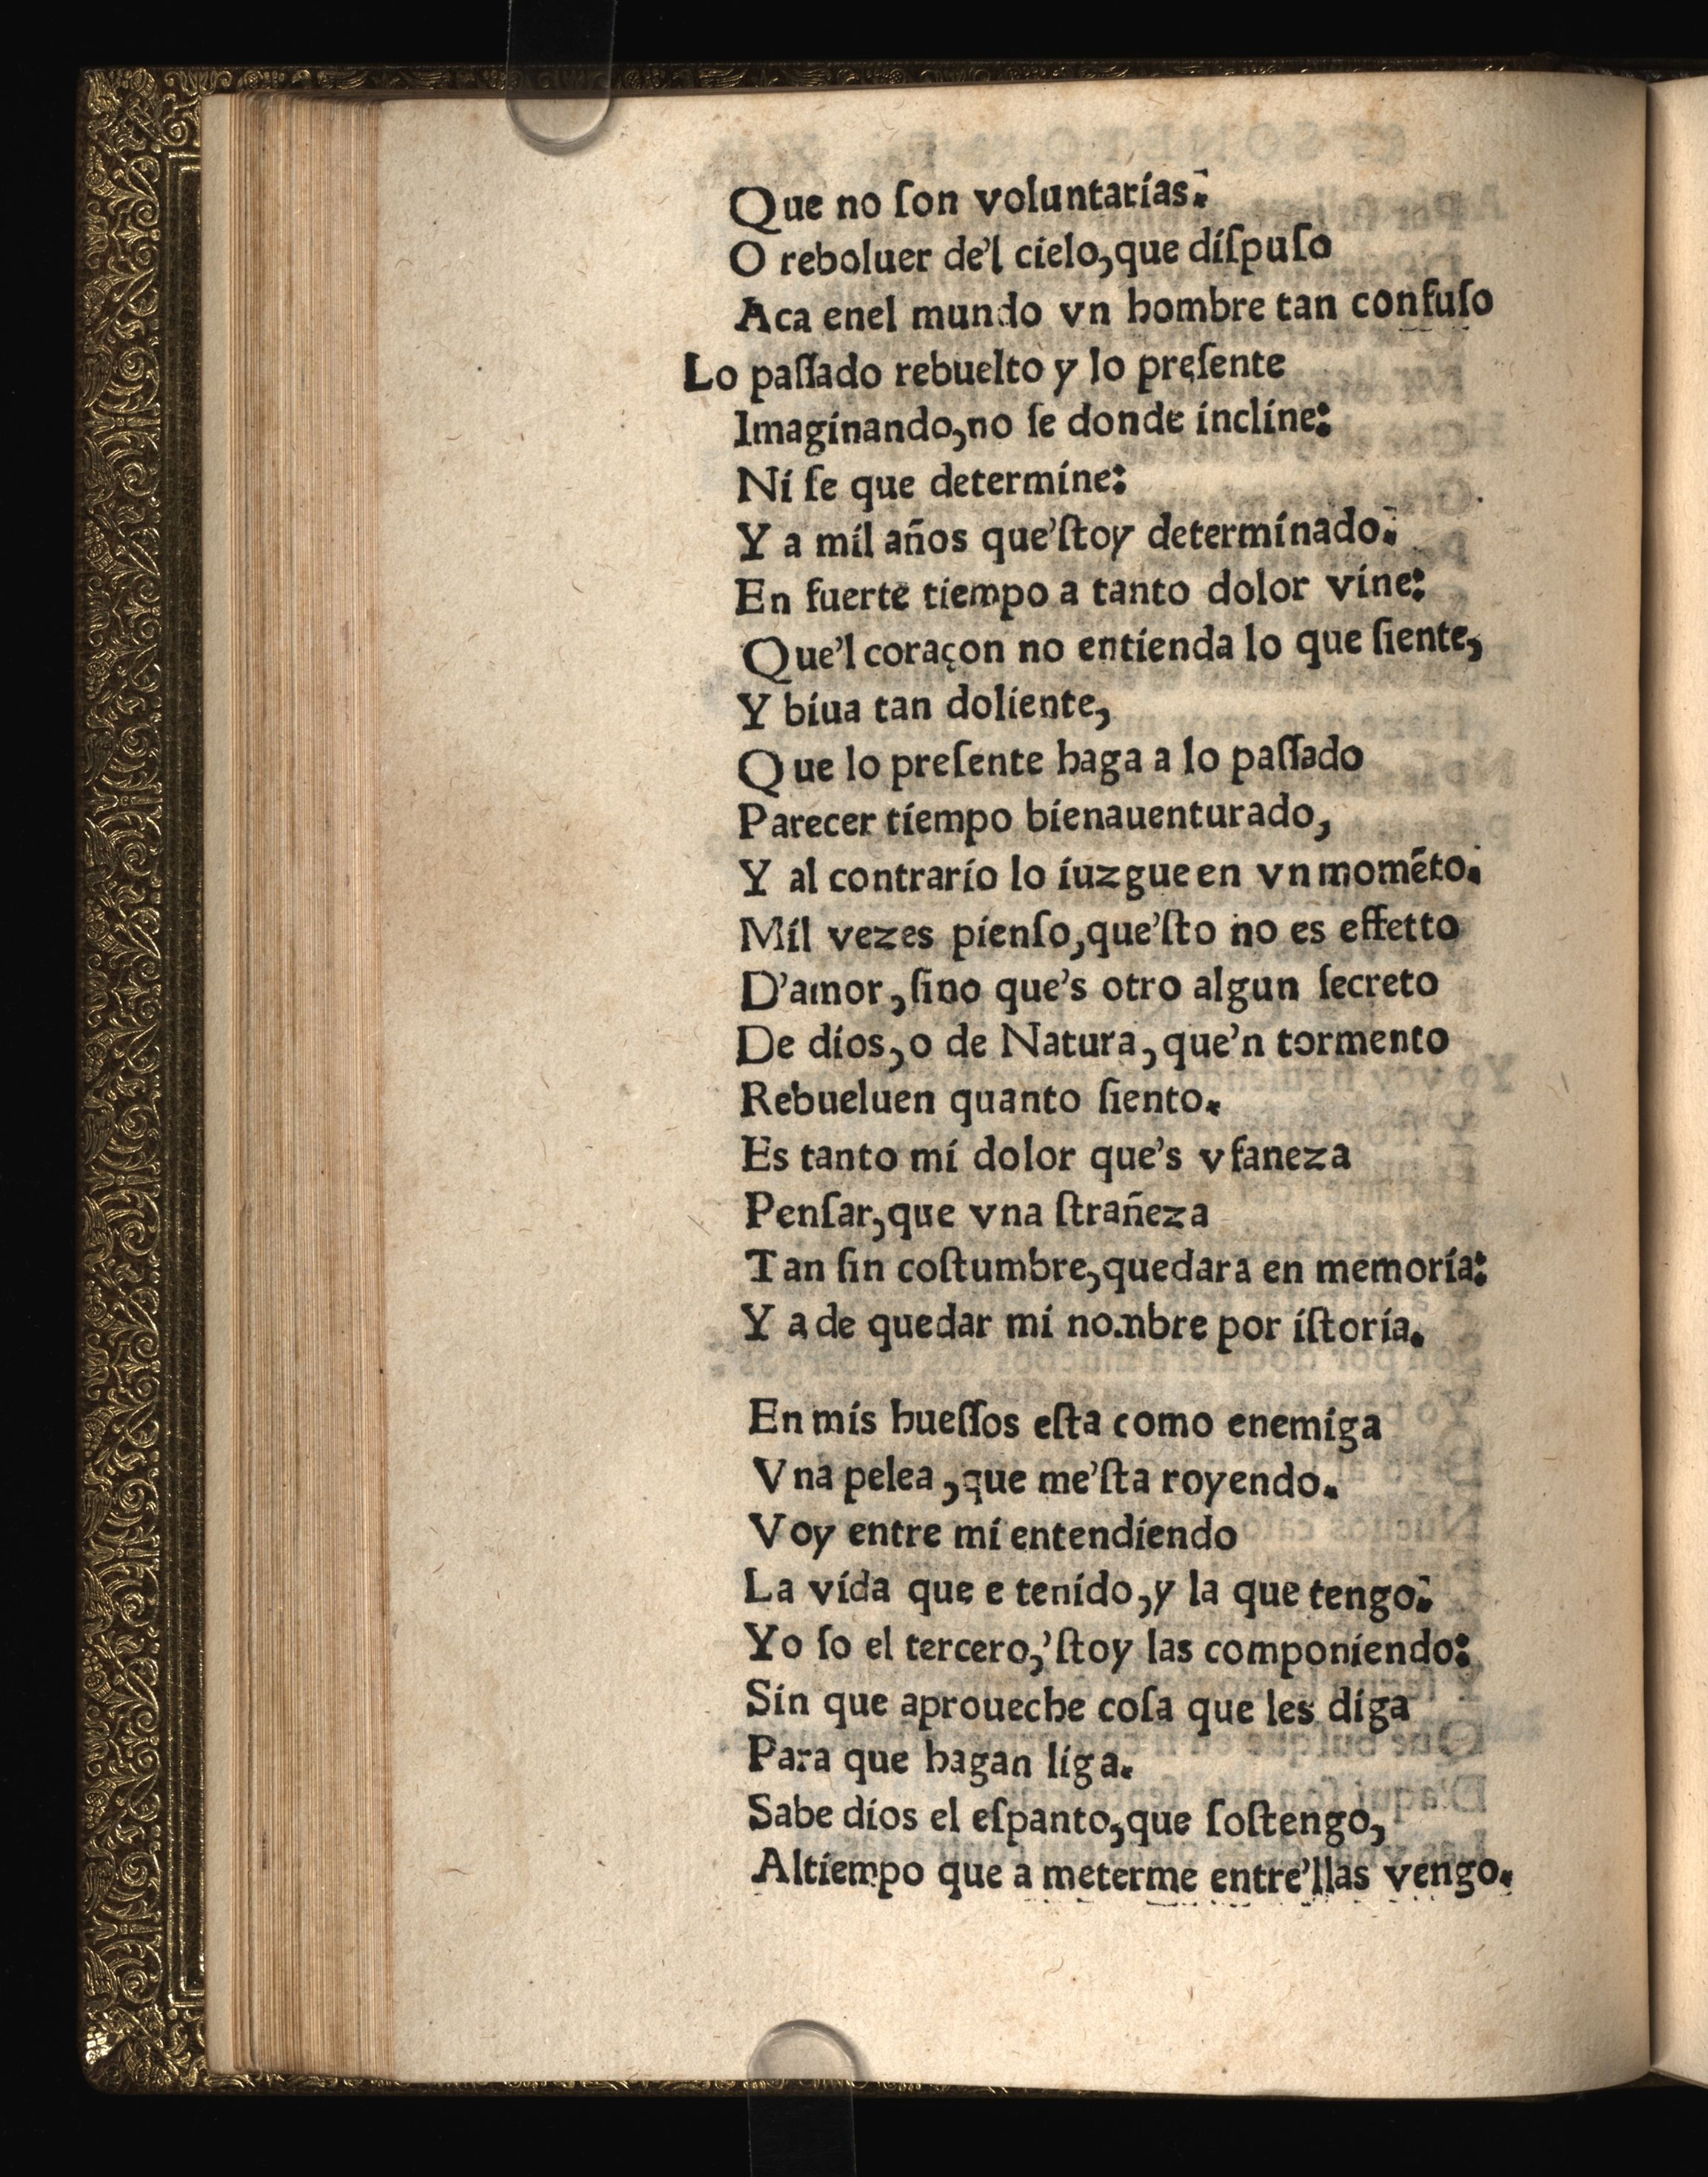 Que no ſon voluntarias:
O reboluer de'l cielo, que diſpuſo
Aca enel mundo vn hombre tan confuſo
Lo paſſado rebuelto y lo preſente
Imaginando, no ſe donde incline:
Ni ſe que determine:
Y a mil años que'ſtoy determinado:
En fuerte tiempo a tanto dolor vine:
Que'l coraçon no entienda lo que ſiente,
Y biua tan doliente,
Que lo preſente haga a lo paſſado
Parecer tiempo bienauenturado,
Y al contrario lo iuzgue en vn momẽto.
Mil vezes pienſo, que'ſto no es effetto
D'amor, ſino que's otro algun ſecreto
De dios, o de Natura, que'n tormento
Rebueluen quanto ſiento.
Es tanto mi dolor que's vfaneza
Penſar, que vna ſtrañeza
Tan ſin coſtumbre, quedara en memoria:
Y a de quedar mi nombre por iſtoria.
En mis hueſſos eſta como enemiga
Vna pelea, que me'ſta royendo.
Voy entre mi entendiendo
La vida que e tenido, y la que tengo:
Yo ſo el tercero, 'ſtoy las componiendo:
Sin que aproueche coſa que les diga
Para que hagan liga.
Sabe dios el eſpanto, que ſoſtengo,
Al tiempo que a meterme entre'llas vengo.